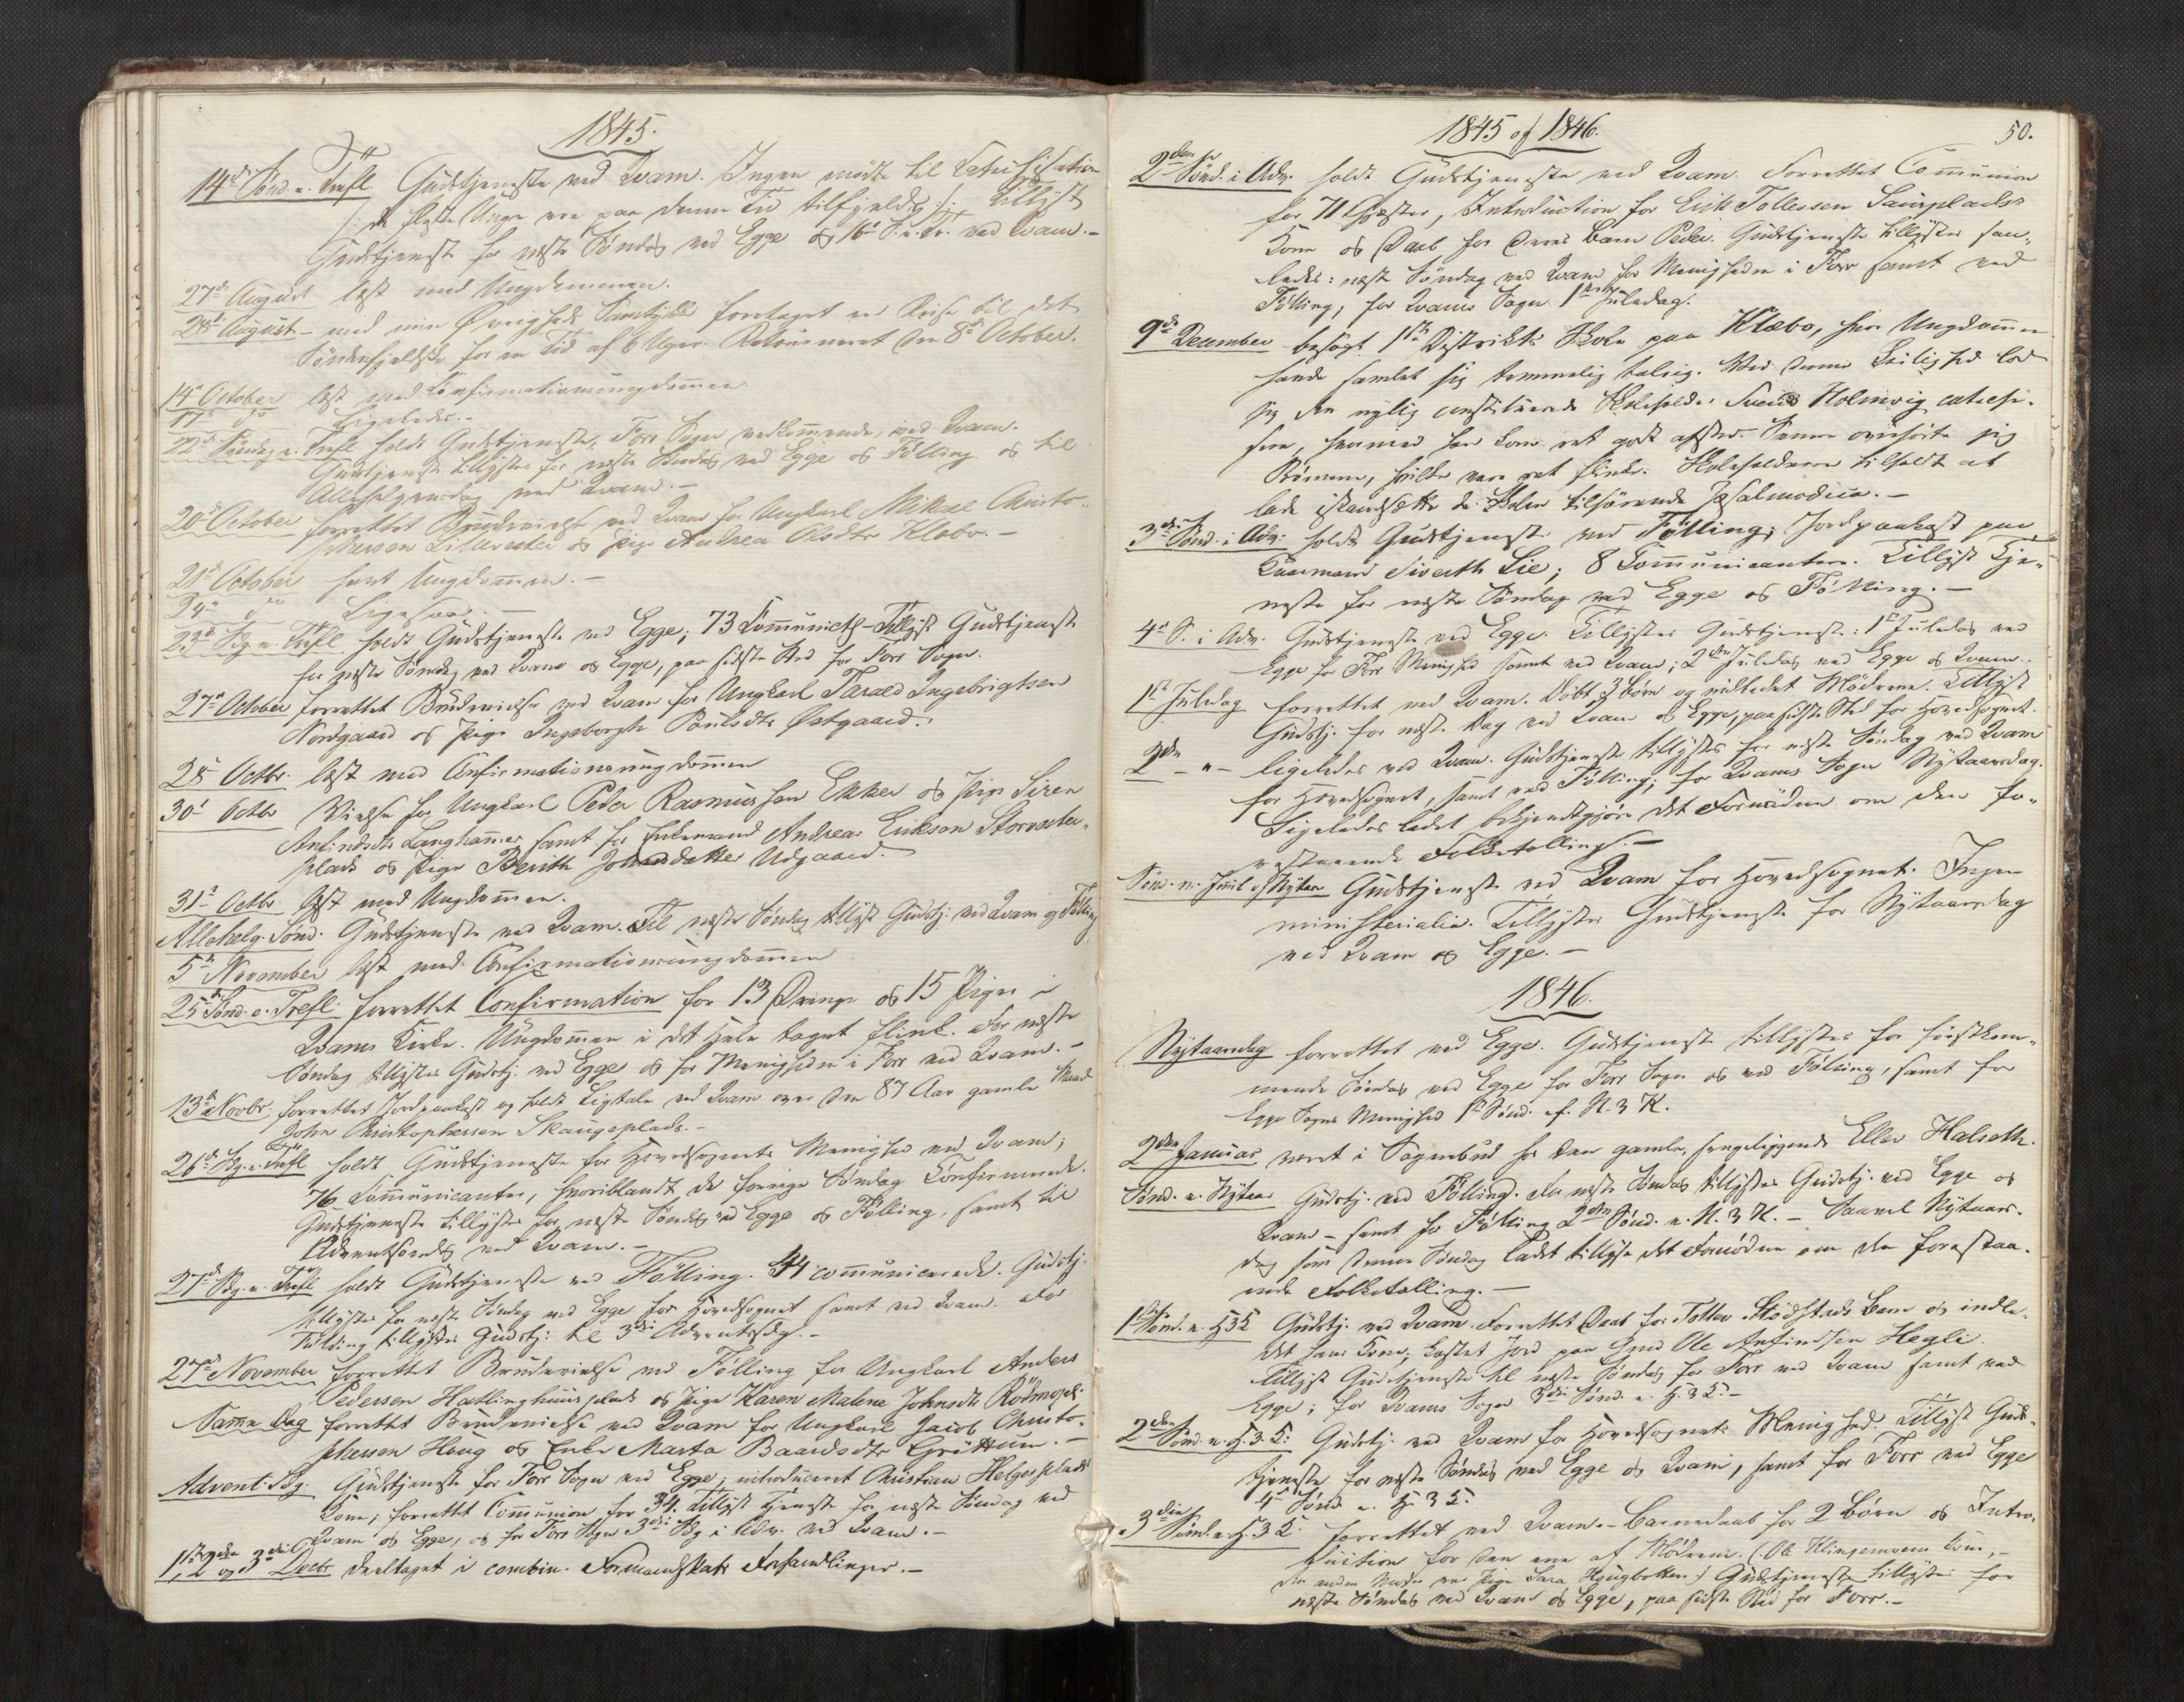 1845.
14de Sønd. e. Trefl. Gudstjeneste ved Qvam. Ingen mødte til Catechisation
/: de fleste Unge ere paa denne Tid tilfjelds :/. Tillyst
Gudstjeneste for næste Søndag ved Egge og 16de S. e. Tr. ved Qvam.-
27de August læst med Ungdommen.
28de August - med min Øvrigheds Samtykke foretaget en Reise til det
Søndenfjeldske for en Tid af 6 Uger. Retourneret den 8de October.
14de October læst med Confirmationsungdommen.
17de do Ligeledes.-
22de Søndag e. Trefl. holdt Gudstjeneste, Forr Sogn vedkommende, ved Qvam.
Gudstjeneste tillystes for næste Søndag ved Egge og Fölling og til
Allehelgensdag ved Qvam.-
20de October forrettet Brudevielse ved Qvam for Ungkarl Mikal Christo-
phersen Lillevestre og Pige Andrea Olsdtr Klæbo.-
21de October havt Ungdommen.-
24de do Ligesaa.-
23de Sdg. e. Trefl. holdt Gudstjeneste ved Egge; 73 Communicts.- Tillyst Gudstjeneste
for næste Søndag ved Qvam og Egge, paa sidste Sted for Forr Sogn.
27de October forrettet Brudevielse ved Qvam for Ungkarl Tarald Ingebrigtsen
Nordgaard og Pige Ingeborgth Paulsdtr Østgaard.
28 Octbr. læst med Confirmationsungdommen
30te Octbr Vielse for Ungkarl Peter Rasmussen Ekker og Pige Siren
Anfindsdtr Langhammer samt for Enkemand Andreas Eriksen Storvester-
plads og Pige Berith Johnsdatter Udgaard.
31te Octbr. læst med Ungdommen.
Allehelg. Sønd. Gudstjeneste ved Qvam. Til næste Søndag tillyst Gudstj. ved Qvam og Fölling
5te November læst med Confirmationsungdommen
25de Sønd. e. Trefl. forrettet Confirmation for 13 Drenge og 15 Piger i
Qvams Kirke. Ungdommen i det Hele taget flink. For næste
Søndag tillystes Gudstj. ved Egge og for Menigheden i Forr ved Qvam.-
13de Novbr. forrettet Jordpaakast og holdt Ligtale ved Qvam over den 87 Aar gamle Mand
John Christophersen Skaugeplads.-
26de Sdg. e. Trefl holdt Gudstjeneste for Hovedsognets Menighed ved Qvam;
76 Communicanter, hvoriblandt de forrige Søndag Confirmerede.
Gudstjeneste tillystes for næste Søndag ved Egge og Fölling, samt til
Adventssøndag ved Qvam.-
27de Sdg. e. Trefl holdt Gudstjeneste ved Fölling. 44 communicerede. Gudstj.
tillystes for næste Søndag ved Egge for Hovedsognet samt ved Qvam. For
Fölling tillystes Gudstj: til 3die Adventssdg.-
27de November forrettet Brudevielse ved Fölling for Ungkarl Anders
Pedersen Hatlinghuusplads og Pige Karen Malene Johnsdtr Rödmopl:
Samme Dag forrettet Brudevielse ved Qvam for Ungkarl Jacob Christo-
phersen Haug og Enke Marta Baardsdtr Gröttum.-
Advent. Sdg. Gudstjeneste for Forr Sogn ved Egge; introduceret Christian Helgesplads
Kone; forrettet Communion for 34. Tillyst Tjeneste for næste Søndag ved
Qvam og Egge, og for Forr Sogn 3die Sdg i Adv. ved Qvam.-
1ste, 2den og 3die Decbr deeltaget i combin. Formandskabs Forhandlinger.-
1845 og 1846.
50.
2den Sønd. i Adv. holdt Gudstjeneste ved Qvam. Forrettet Communion
for 71 Gjester, Introduction for Erik Tollefsen Sairplads's
Kone og Daab for deres Barn Peder. Gudstjeneste tillystes saa-
ledes: næste Søndag ved Qvam for Menigheden i Forr samt ved
Fölling, for Qvams Sogn 1ste Juledag.
9de December besøgt 1ste Districts Skole paa Klæbo, hvor Ungdommen
havde samlet sig temmelig talrig. Ved denne Leilighed lod
jeg den nylig constituerede Skoleholder Svend Holmvig catechi-
sere, hvormed han kom ret godt afsted. Senere overhørte jeg
Børnene, hvilke vare ret flinke. Skoleholderen tilholdt at
lade istandsætte de Skolen tilhørende Psalmodica.-
3die Sønd. i Adv: holdt Gudstjeneste ved Fölling; Jordpaakast paa
Laarmand Siverth Lie; 8 Communicantere. Tillyst Tje-
neste for næste Søndag ved Egge og Fölling.-
4de S. i Adv. Gudstjeneste ved Egge. Tillystes Gudstjeneste: 1ste Juledag ved
Egge for Forr Menighed samt ved Qvam; 2den Juledag ved Egge og Qvam.-
1ste Juledag forrettet ved Qvam. Döbt 3 Börn og indledet Mödrene. Tillyst
Gudstj. for næste Dag ved Qvam og Egge, paa sidste Sted for Hovedsognet.
2den -"- ligeledes ved Qvam. Gudstjeneste tillystes for næste Søndag ved Qvam
for Hovedsognet, samt ved Fölling; for Qvams Sogn Nytaarsdag.
Ligeledes ladet bekjendtgjøre det Fornødne om den fo-
restaaende Folketælling.-
Sønd. m. Juul og Nytaar Gudstjeneste ved Qvam for Hovedsognet. Ingen
ministerialia. Tillystes Gudstjeneste for Nytaarsdag
ved Qvam og Egge.-
1846.
Nytaarsdag forrettet ved Egge. Gudstjeneste tillystes for førstkom-
mende Søndag ved Egge for Forr Sogn og ved Fölling, samt for
Egge Sogns Menighed 1ste Sønd. ef. H. 3 K.
2den Januar været i Sognebud hos den gamle, sengeliggende Ellev Halseth.
Sønd. e. Nytaar Gudstj. ved Fölling. For næste Søndag tillystes Gudstj. ved Egge og
Qvam - samt for Fölling 2den Sønd. e. H. 3 K. - Saavel Nytaars-
dag som denne Søndag ladet tillyse det Fornødne om den forestaa-
ende Folketælling.-
1ste Sønd. e. H3K Gudstj. ved Qvam. Forrettet Daab for Tollev Stödstads Barn og indle-
det hans Kone; kastet Jord paa Gmd Ole Anfindsen Hegli.
Tillyst Gudstjeneste til næste Søndag for Forr ved Qvam samt ved
Egge; for Qvams Sogn 3die Sønd. e. H. 3 K.-
2den Sønd. e. H. 3 K: Gudstj. ved Qvam for Hovedsognets Menighed. Tillyst Guds-
tjeneste for næste Søndag ved Egge og Qvam, samt for Forr ved Egge
4de Sønd. e. H. 3 K.
3die Sønd. e. H. 3 K. forrettet ved Qvam.- Barnedaab for 2 Börn og Intro-
duction for den ene af Mödrene. (: Ole Klingenmoens Kone,-
den anden Moder var Pige Sara Haugbakken.) Gudstjeneste tillystes for
næste Søndag ved Qvam og Egge, paa sidste Sted for Forr.-